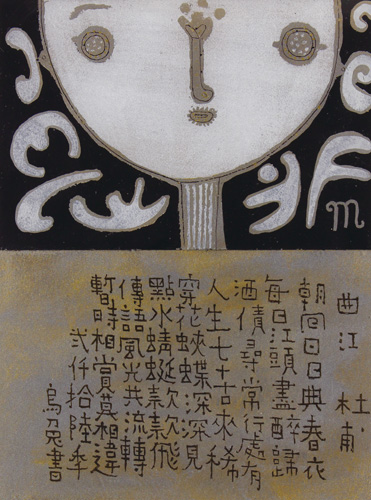 m
曲江 杜甫
朝回日日典春衣
每日江頭盡醉歸
酒債尋常行處有
人生七十古來稀
穿花蛺蝶深深見
點水蜻蜓款款飛
傳語風光共流轉
暫時相賞莫相違
弍仟拾陸年
烏兔書